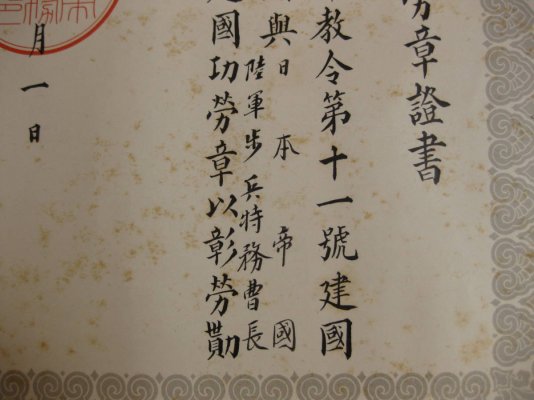 勞章證書
教令第十一號建國
與日本帝國
陸軍步兵特務曹長
國功勞章以彰勞勩
月一日